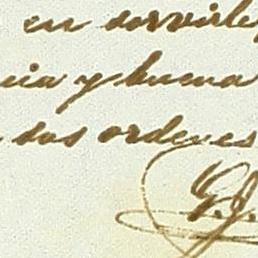 en servirle,
cia y buena
sus ordenes
G. J.